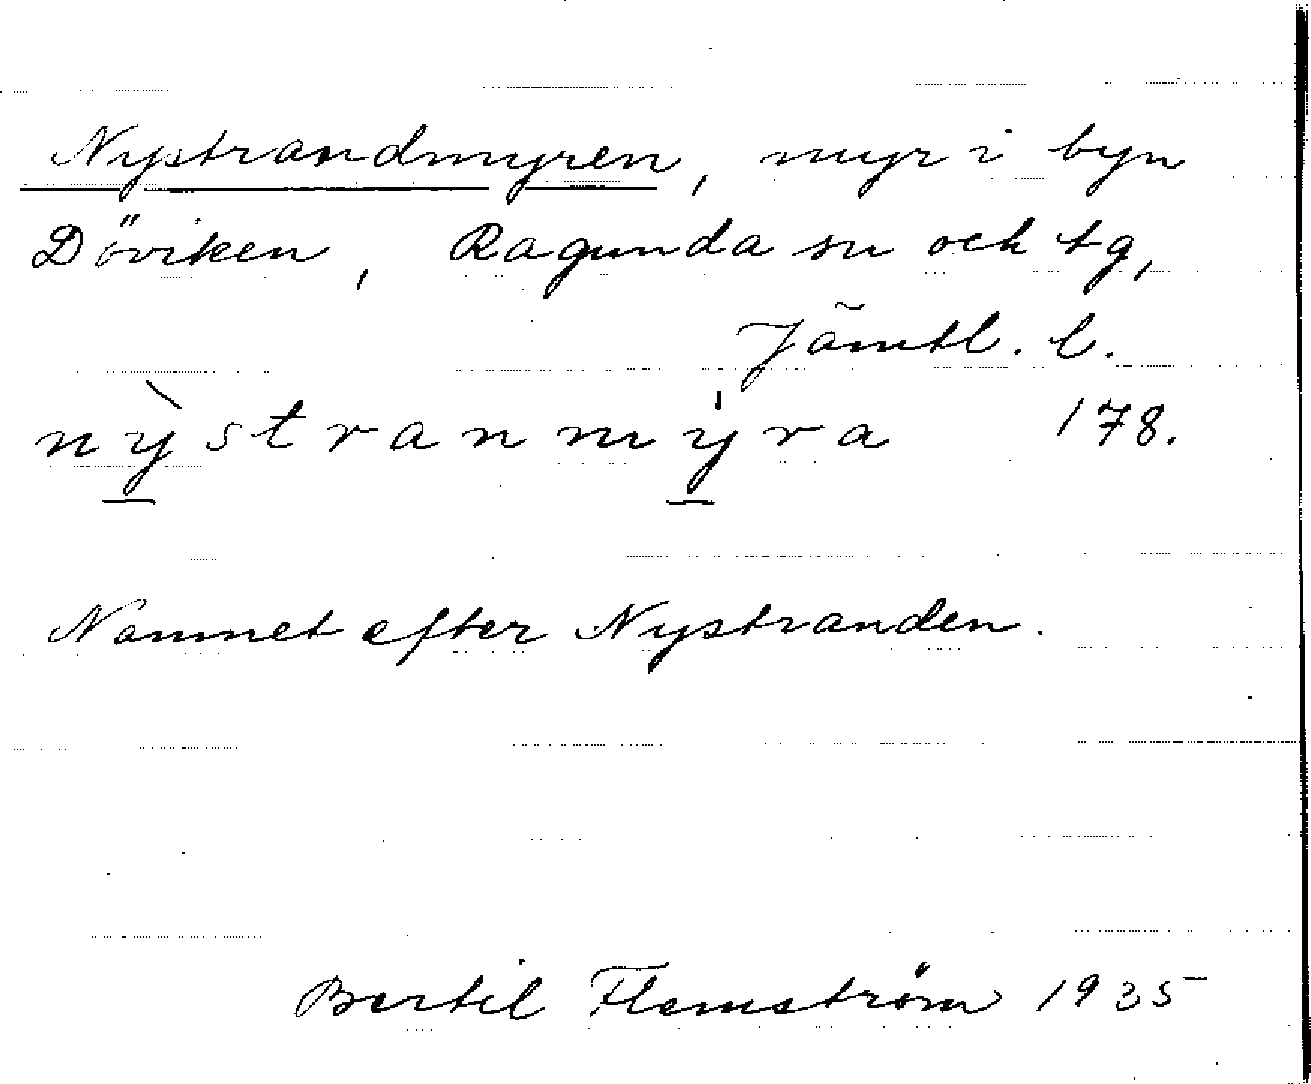 Nystrandmyren, myr i byn
Döviken, Ragunda sn och tg,
Jämtl. l.
nỳstranmýra 178.
Namnet efter Nystranden.
Bertil Flemström 1935